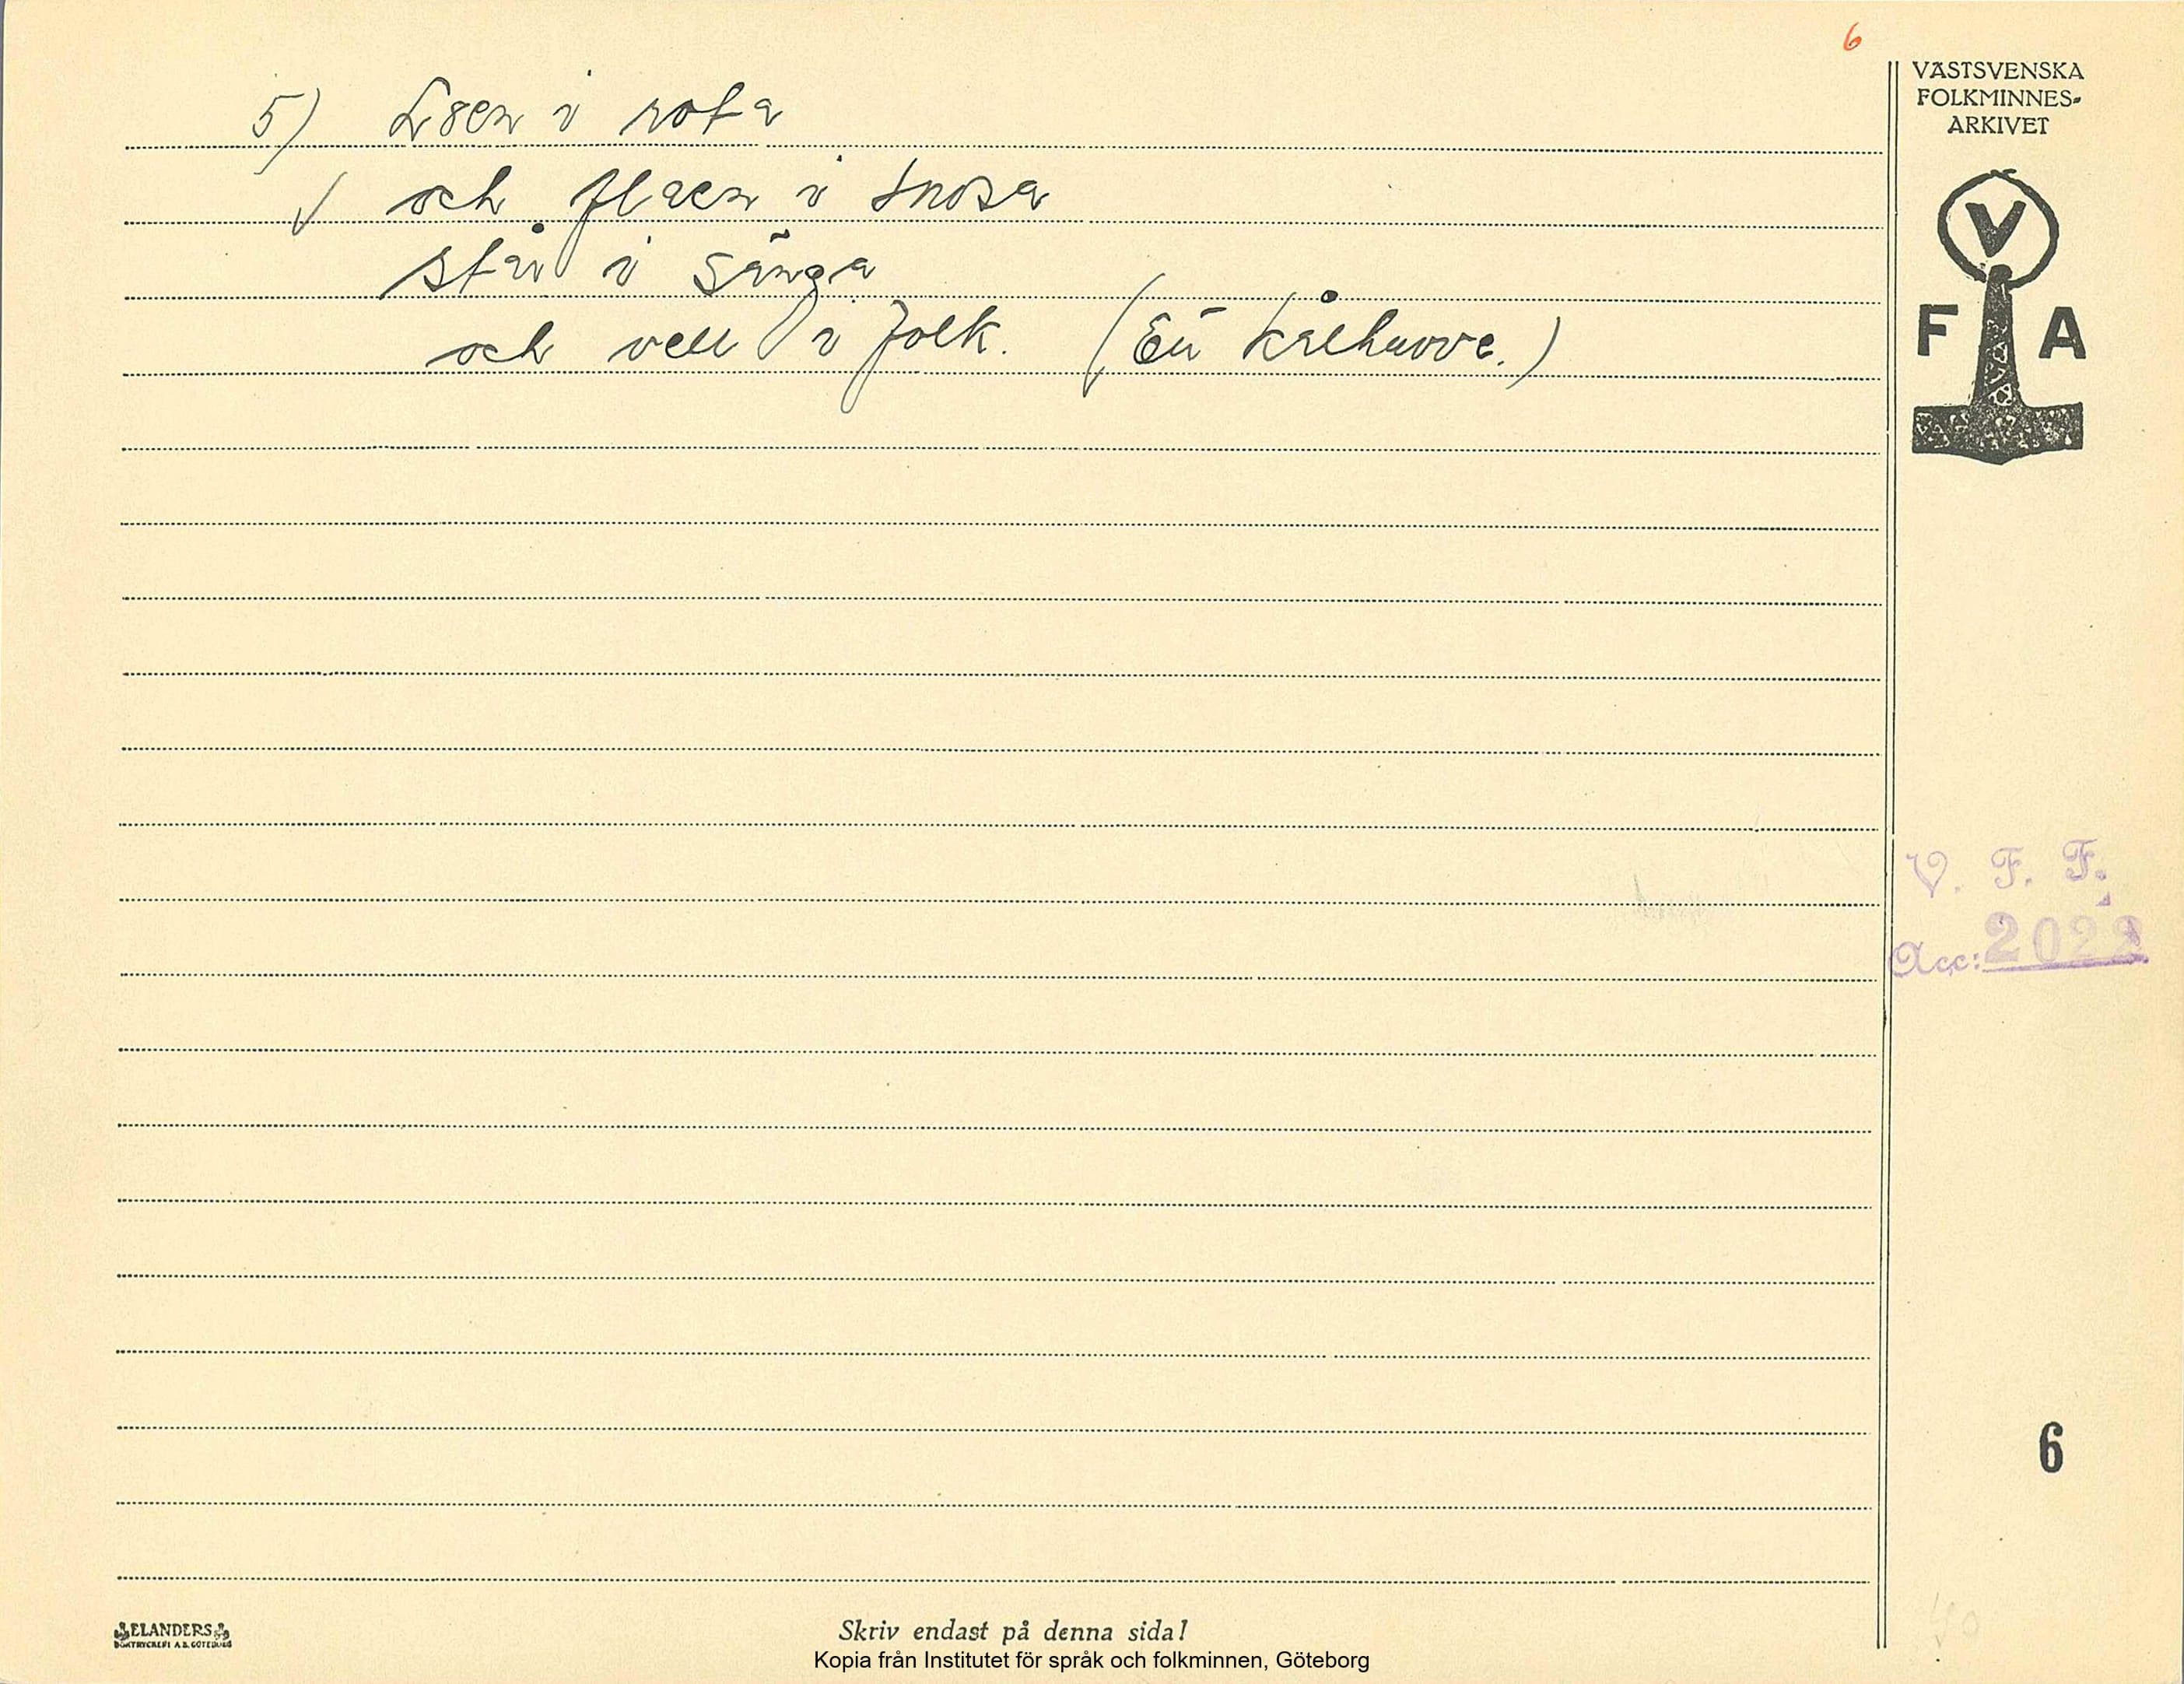 6
5) i rota
√ och flaen i snosa
står i sänga
och vell i folk. (Ett kålhuvve.)
VÄSTSVENSKA
FOLKMINNES-
ARKIVET
V
F A
V. F. F.
Acc: 2022
6
ELANDERS
BOKTRYCKERI A.B. GÖTEBORG
Skriv endast på denna sida!
Kopia från Institutet för språk och folkminnen, Göteborg